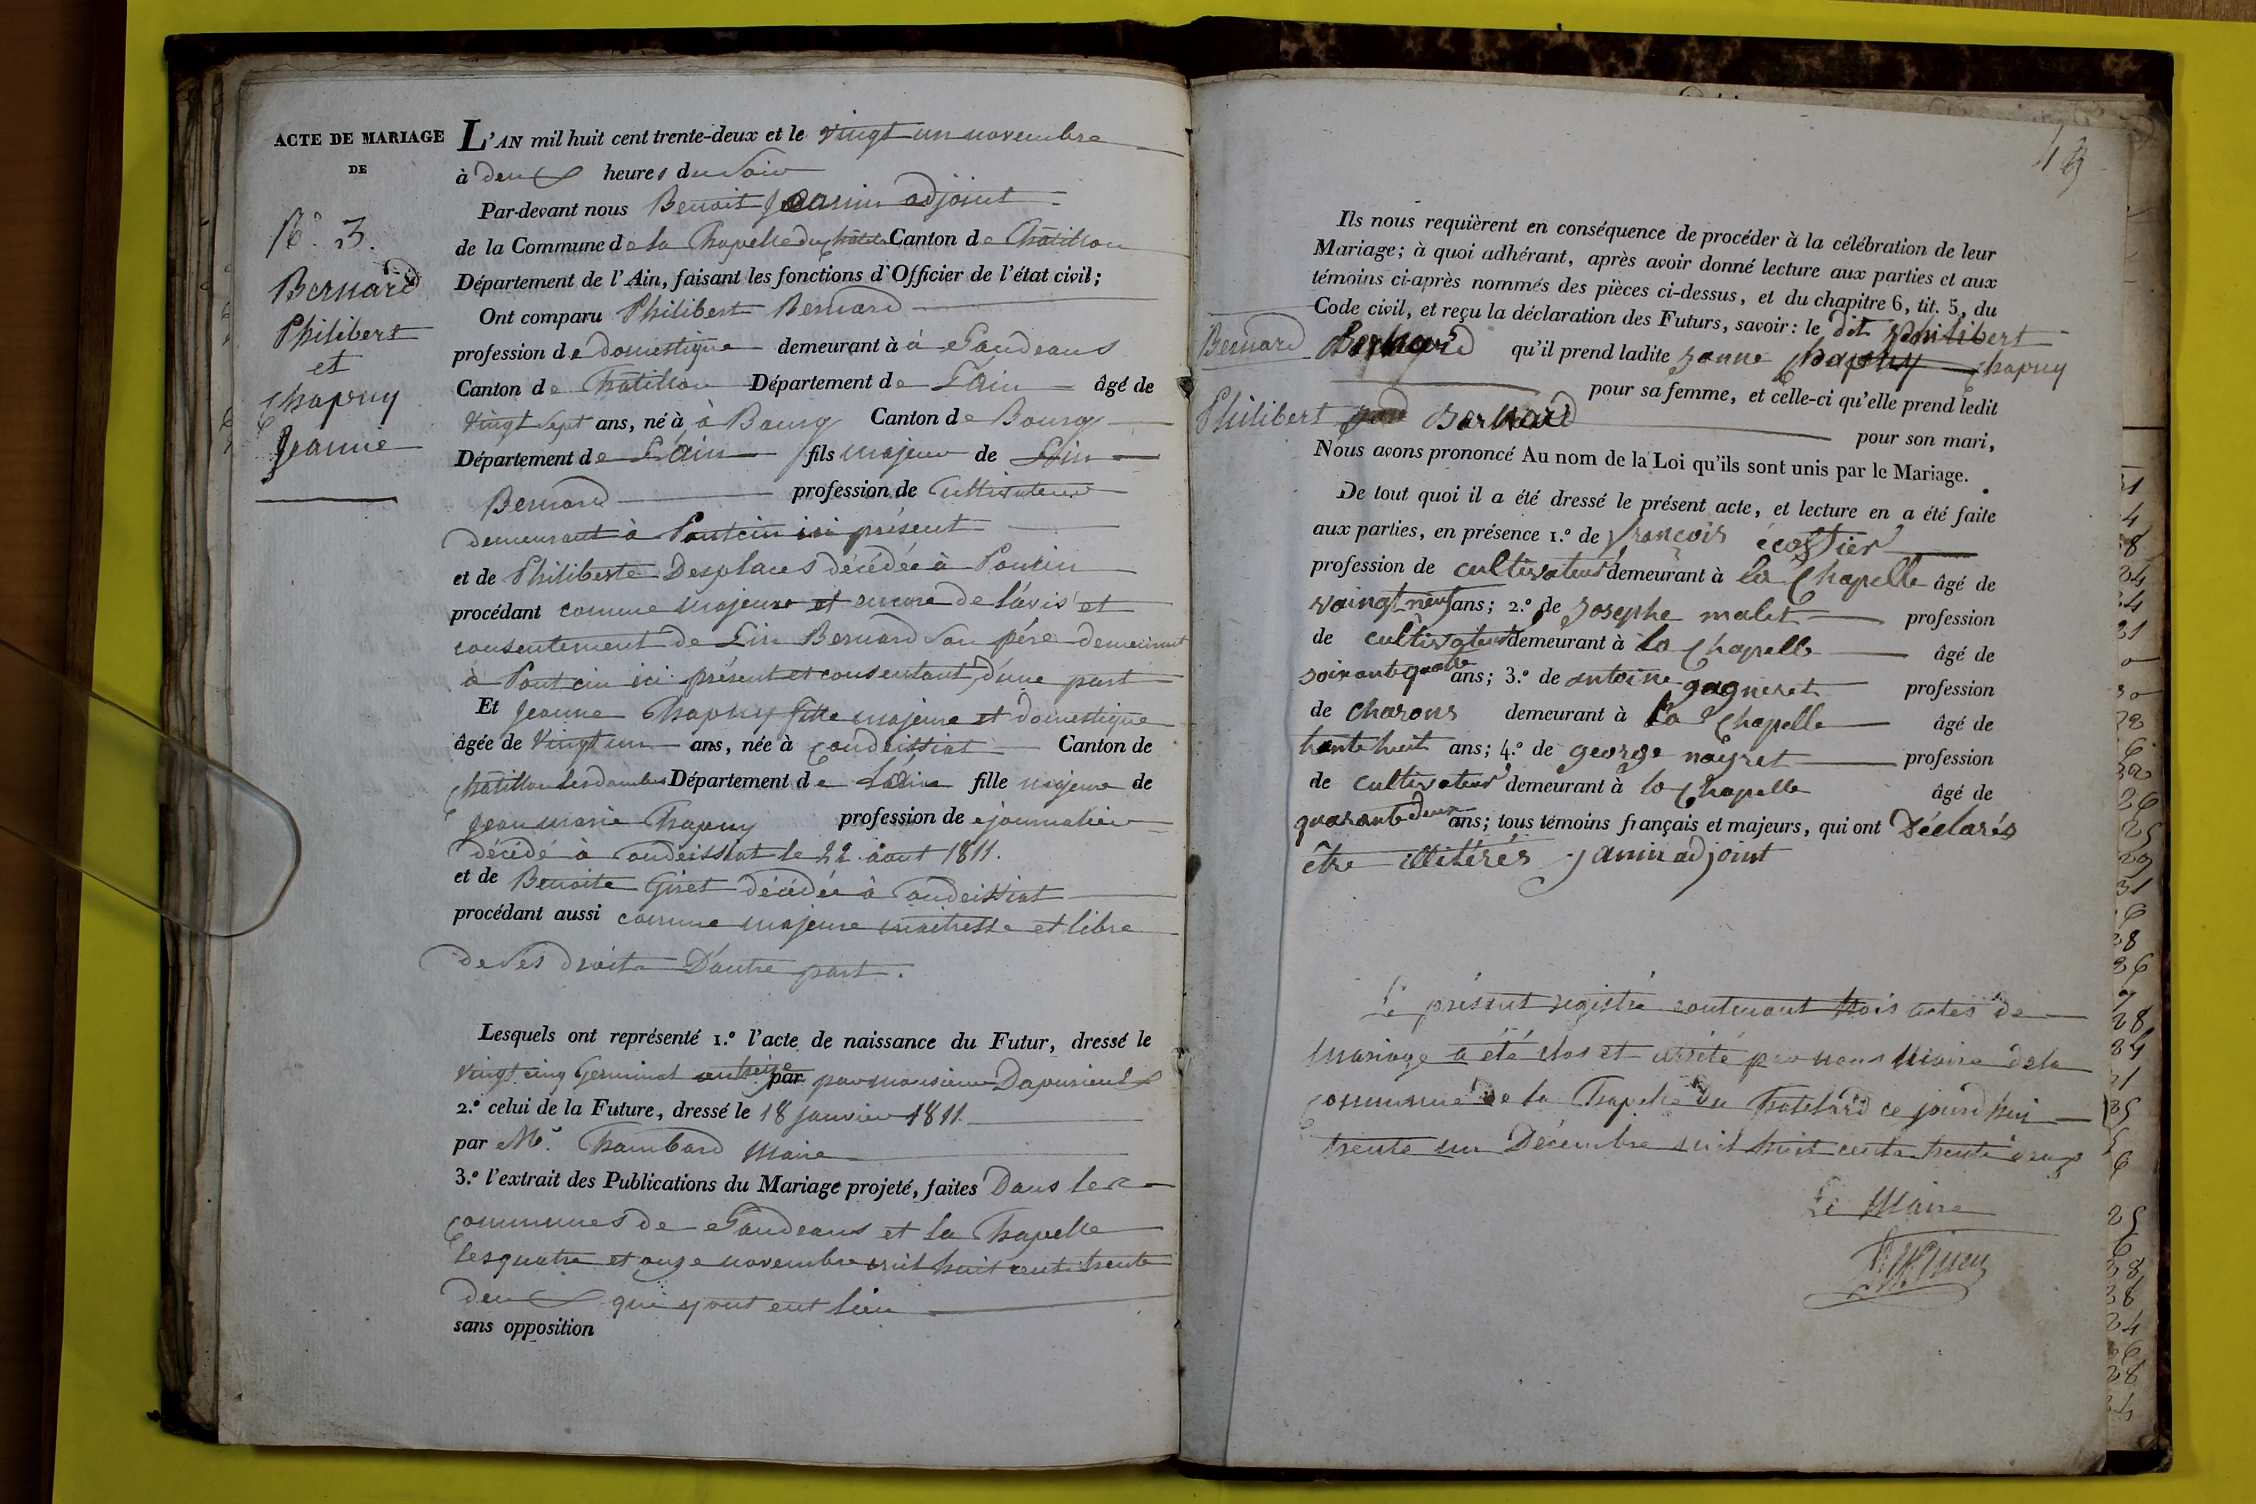 ACTE DE MARIAGE
DE
N.º 3.
Bernard
Philibert
et
Chapuy
Jeanne
L'AN mil huit cent trente-deux et le vingt un novembre
à deux heures du soir
Par-devant nous Benoit Jeamin adjoint
de la Commune de la Chapelle du châtelard Canton de Châtillon
Département de l'Ain, faisant les fonctions d'Officier de l'état civil;
Ont comparu Philibert Bernard
profession de domestique demeurant à à Sandrans
Canton de Châtillon Département de L'Ain âgé de
vingt sept ans, né à à Bourg Canton de Bourg
Département de L'Ain fils majeur de
Bernard profession de cultivateur
demeurant à Pontcin ici présent
et de Philiberte Desplaces décédée à Poncin
procédant comme majeur et encore de l'avis et
consentement de Bernard son père demeurant
à Pontcin ici présent et consentant, d'une part
Et Jeanne Chapuy fille majeure et domestique
âgée de vingt un ans, née à Condeissiat Canton de
châtillon les dombes Département de L'Ain fille majeure de
Jean marie Chapuy profession de journalier
décédé à Condeissiat le 22 aout 1811.
et de Benoite Giret décédée à Condeissiat
procédant aussi comme majeure maitresse et libre
de ses droits D'autre part.
Lesquels ont représenté 1.º l'acte de naissance du Futur, dressé le
vingt cinq Germinal an treize par par monsieur
2.º celui de la Future, dressé le 18 janvier 1811
par Mr. Chambard Maire
3.º l'extrait des Publications du Mariage projeté, faites Dans les
communes de Sandrans et la Chapelle
les quatre et onze novembre mil huit cent trente
deux qui y ont eut lieu
sans opposition
49
Ils nous requièrent en conséquence de procéder à la célébration de leur
Mariage; à quoi adhérant, après avoir donné lecture aux parties et aux
témoins ci-après nommés des pièces ci-dessus, et du chapitre 6, tit. 5, du
Code civil, et reçu la déclaration des Futurs, savoir: le dit philibert
Bernard Bernard qu'il prend ladite Janne Chapuy Chapuy
pour sa femme, et celle-ci qu'elle prend ledit
Philibert Bernard
pour son mari,
Nous avons prononcé Au nom de la Loi qu'ils sont unis par le Mariage.
De tout quoi il a été dressé le présent acte, et lecture en a été faite
aux parties, en présence 1.º de françois écostier
profession de cultivateur demeurant à la Chapelle âgé de
vaingt neuf ans; 2.º de Josephe malet profession
de cultivateur demeurant à la Chapelle âgé de
soixante quatre ans; 3.º de antoine gagneret profession
de charons demeurant à La Chapelle âgé de
trente huit ans; 4.º de george nayret profession
de cultivateur demeurant à la Chapelle âgé de
quarante deux ans; tous témoins français et majeurs, qui ont Déclarés
être illitérés Jamin adjoint
Le présent registre contenant trois actes de
mariage a été clos et arrété par nous Maire de la
commune de la Chapelle du Chatelard ce jourd'hui
trente un Décembre mil huit cents trente deux
Le Maire